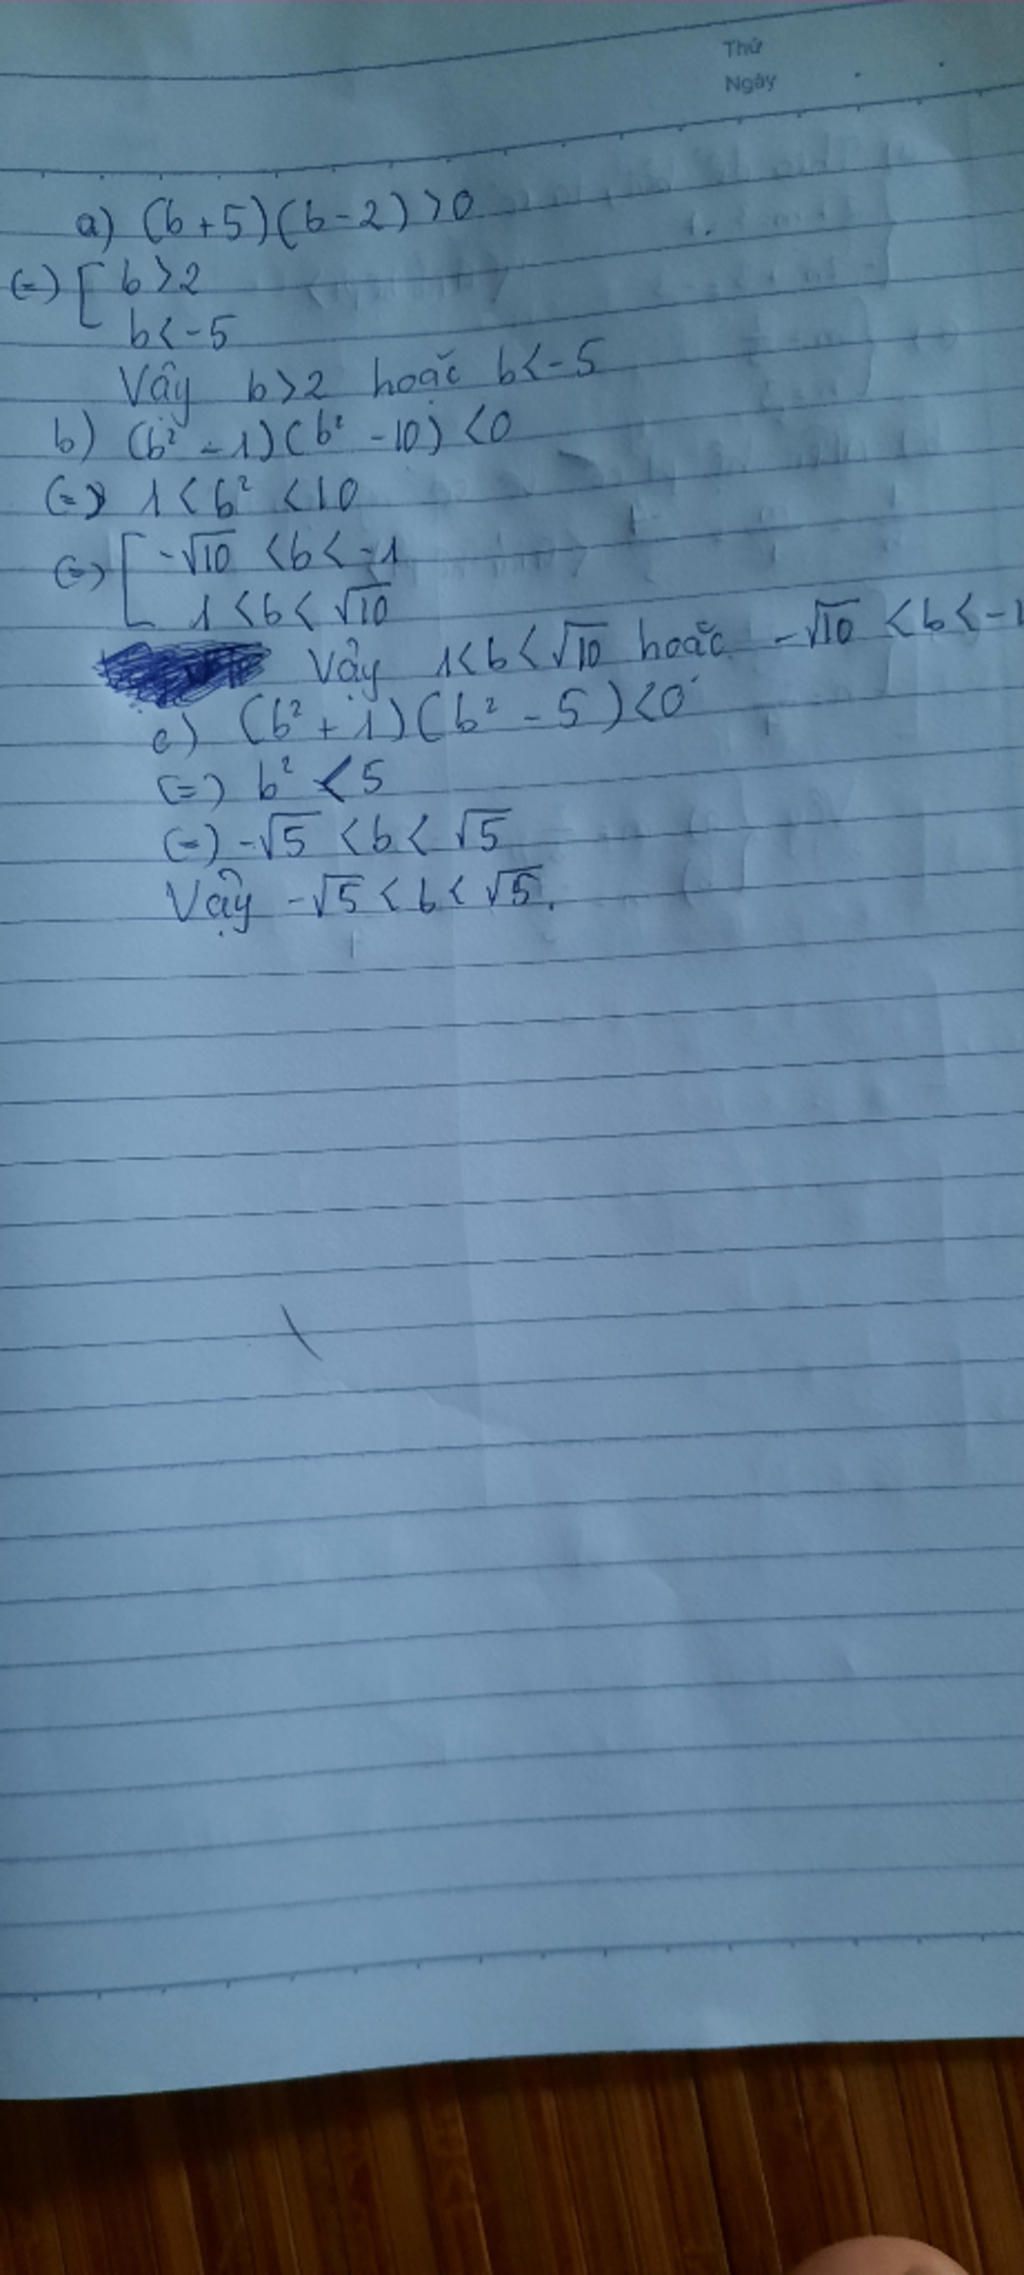 Thứ
Ngày
a) (b+5)(b-2)>0
(=) [ b>2
b<-5
Vậy b>2 hoặc b<-5
b) (b² - 1)(b² - 10) <0
(=) 1<b² <10
(=) [ -√10 <b<-1
1<b<√10
Vậy 1<b<√10 hoặc -√10 <b<-1
c) (b² + 1)(b² - 5)<0
(=) b² <5
(=) -√5 <b< √5
Vậy -√5<b<√5.